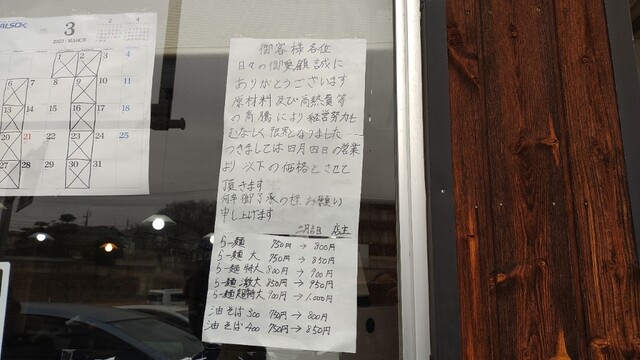 ALSOK
3
2023 · MARCH
1 2 3 4
6 7 8 9 10 11
13 14 15 16 17 18
20 21 22 23 24 25
27 28 29 30 31
御客様各位
日々の御愛顧誠に
ありがとうございます
原材料及び高熱費等
の高騰により経営努力も
むなしく限界となりました
つきましては四月四日の営業
より以下の価格とさせて
頂きます
何卒御了承の程お願い
申し上げます
店主
らー麺 750円→800円
らー麺 大 750円→850円
らー麺 特大 800円→900円
らー麺 激大 850円→950円
らー麺 超特大 900円→1,000円
油そば 300 750円→800円
油そば 400 750円→850円